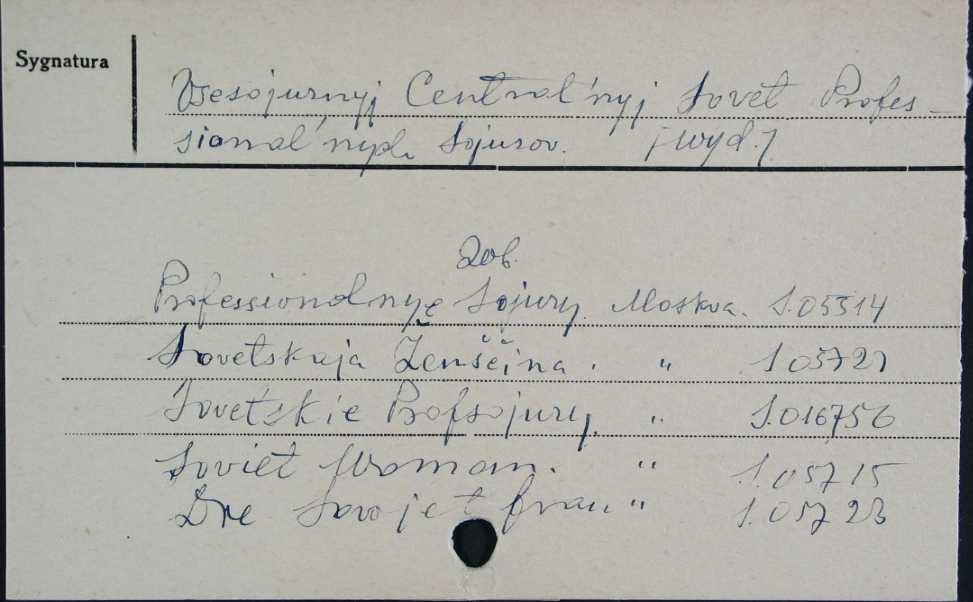 Sygnatura
Vsesojuznyj Central'nyj Sovet Profes-
sional'nych Sojuzov. /wyd./
Zob.
Professionalnye Sojuzy. Moskva. S.05314
Sovetskaja Ženščina. "
Sovetskie Profsojuzy. " S.016756
Soviet Woman. " S.05715
Die Sowjet frau " S.05723